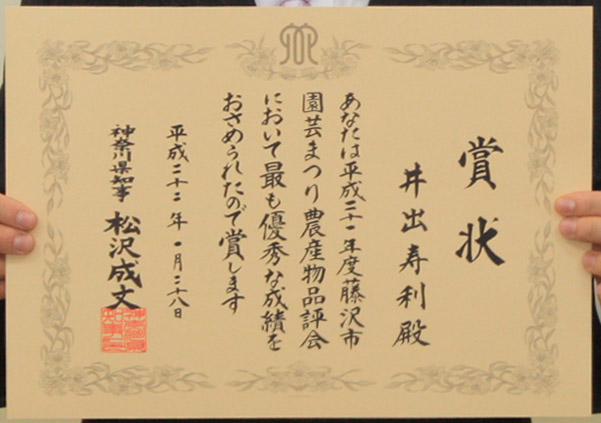 賞状
井出寿利殿
あなたは平成二十一年度藤沢市
園芸まつり農産物品評会
において最も優秀な成績を
おさめられたので賞します
平成二十二年一月二十八日
神奈川県知事 松沢成文